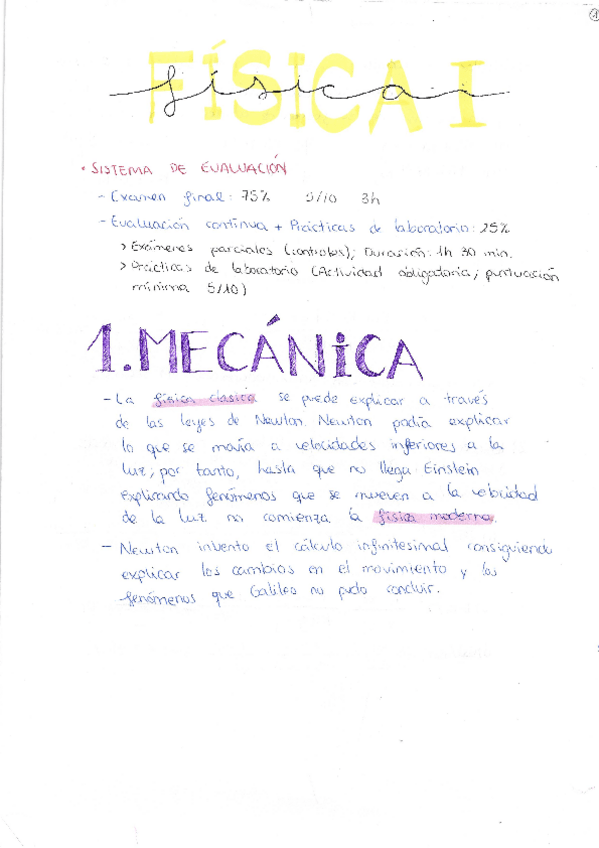 1
FÍSICA I
física I
• SISTEMA DE EVALUACIÓN
- Examen final: 75% 5/10 3h
- Evaluación continua + Prácticas de laboratorio: 25%
> Exámenes parciales (controles); Duración: 1h 30 min.
> Prácticas de laboratorio (Actividad obligatoria; puntuación
mínima 5/10)
1. MECÁNICA
- La física clásica se puede explicar a través
de las leyes de Newton. Newton podía explicar
lo que se movía a velocidades inferiores a la
luz; por tanto, hasta que no llega Einstein
explicando fenómenos que se mueven a la velocidad
de la luz no comienza la física moderna.
- Newton inventó el cálculo infinitesimal consiguiendo
explicar los cambios en el movimiento y los
fenómenos que Galileo no pudo concluir.